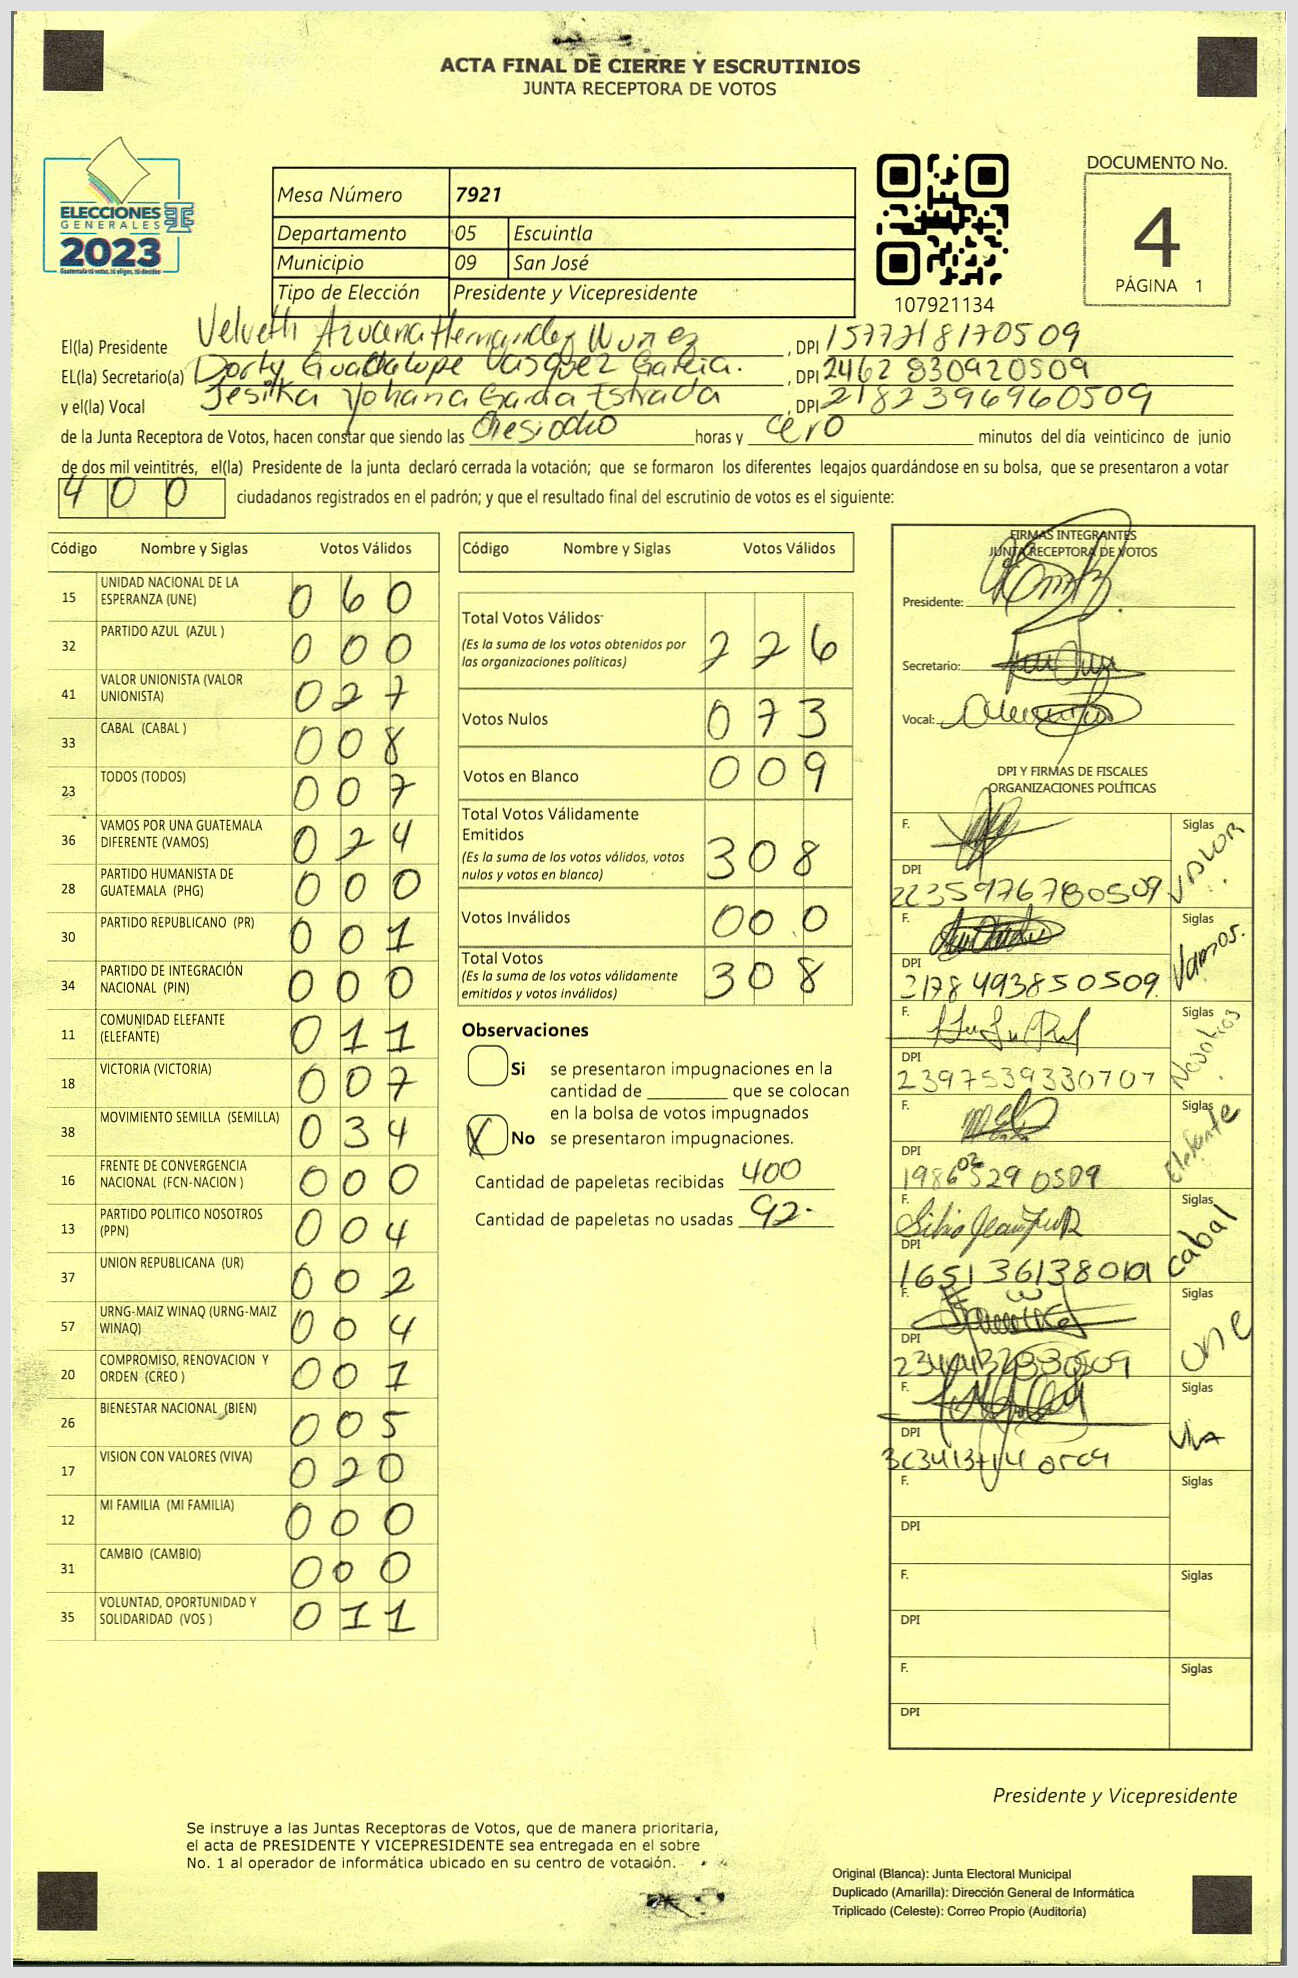 ACTA FINAL DE CIERRE Y ESCRUTINIOS
JUNTA RECEPTORA DE VOTOS
ELECCIONES
GENERALES
2023
Guatemala tú votas, tú eliges, tú decides
Mesa Número 7921
Departamento 05 Escuintla
Municipio 09 San José
Tipo de Elección Presidente y Vicepresidente
107921134
DOCUMENTO No.
4
PÁGINA 1
El(la) Presidente Velveth Azucena Hernandez Muñez , DPI 1577718170509
EL(la) Secretario(a) Dorty Guadalupe Vasquez Garcia. , DPI 2462 830920509
y el(la) Vocal Jesika Yohana Garcia Estrada , DPI 2182396960509
de la Junta Receptora de Votos, hacen constar que siendo las horas y cero minutos del día veinticinco de junio
de dos mil veintitrés, el(la) Presidente de la junta declaró cerrada la votación; que se formaron los diferentes legajos guardándose en su bolsa, que se presentaron a votar
400 ciudadanos registrados en el padrón; y que el resultado final del escrutinio de votos es el siguiente:
Código Nombre y Siglas Votos Válidos
15 UNIDAD NACIONAL DE LA ESPERANZA (UNE) 060
32 PARTIDO AZUL (AZUL ) 000
41 VALOR UNIONISTA (VALOR UNIONISTA) 027
33 CABAL (CABAL ) 008
23 TODOS (TODOS) 007
36 VAMOS POR UNA GUATEMALA DIFERENTE (VAMOS) 024
28 PARTIDO HUMANISTA DE GUATEMALA (PHG) 000
30 PARTIDO REPUBLICANO (PR) 001
34 PARTIDO DE INTEGRACIÓN NACIONAL (PIN) 000
11 COMUNIDAD ELEFANTE (ELEFANTE) 011
18 VICTORIA (VICTORIA) 007
38 MOVIMIENTO SEMILLA (SEMILLA) 034
16 FRENTE DE CONVERGENCIA NACIONAL (FCN-NACION ) 000
13 PARTIDO POLITICO NOSOTROS (PPN) 004
37 UNION REPUBLICANA (UR) 002
57 URNG-MAIZ WINAQ (URNG-MAIZ WINAQ) 004
20 COMPROMISO, RENOVACION Y ORDEN (CREO ) 001
26 BIENESTAR NACIONAL (BIEN) 005
17 VISION CON VALORES (VIVA) 020
12 MI FAMILIA (MI FAMILIA) 000
31 CAMBIO (CAMBIO) 000
35 VOLUNTAD, OPORTUNIDAD Y SOLIDARIDAD (VOS ) 011
Código Nombre y Siglas Votos Válidos
Total Votos Válidos 226
(Es la suma de los votos obtenidos por
las organizaciones políticas)
Votos Nulos 073
Votos en Blanco 009
Total Votos Válidamente
Emitidos 308
(Es la suma de los votos válidos, votos
nulos y votos en blanco)
Votos Inválidos 000
Total Votos 308
(Es la suma de los votos válidamente
emitidos y votos inválidos)
Observaciones
Si se presentaron impugnaciones en la
cantidad de ________ que se colocan
en la bolsa de votos impugnados
X No se presentaron impugnaciones.
Cantidad de papeletas recibidas 400
Cantidad de papeletas no usadas 92.
FIRMAS INTEGRANTES
JUNTA RECEPTORA DE VOTOS
Presidente:
Secretario:
Vocal:
DPI Y FIRMAS DE FISCALES
ORGANIZACIONES POLÍTICAS
F. Siglas VALOR
DPI 2235976780509
F. Siglas Vamos.
DPI 2178493850509
F. Siglas Nosotros
DPI 2397539330707
F. Siglas Elefante
DPI
F. Siglas cabal
DPI
F. Siglas une
DPI
F. Siglas VIVA
DPI
F. Siglas
DPI
F. Siglas
DPI
F. Siglas
DPI
Presidente y Vicepresidente
Se instruye a las Juntas Receptoras de Votos, que de manera prioritaria,
el acta de PRESIDENTE Y VICEPRESIDENTE sea entregada en el sobre
No. 1 al operador de informática ubicado en su centro de votación.
Original (Blanca): Junta Electoral Municipal
Duplicado (Amarilla): Dirección General de Informática
Triplicado (Celeste): Correo Propio (Auditoría)